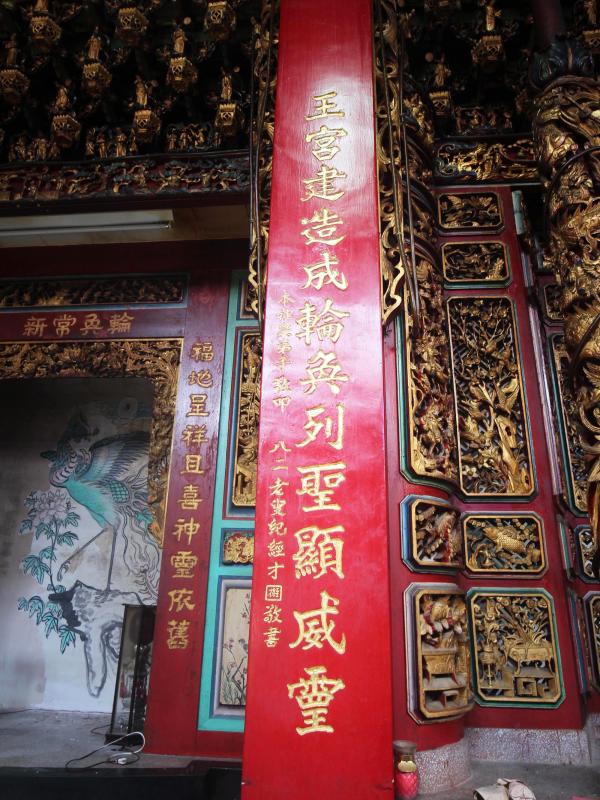 王宮建造成輪奐列聖顯威靈
叩
八二老叟紀經才敬書
新常奐輪
福地呈祥且喜神靈依舊